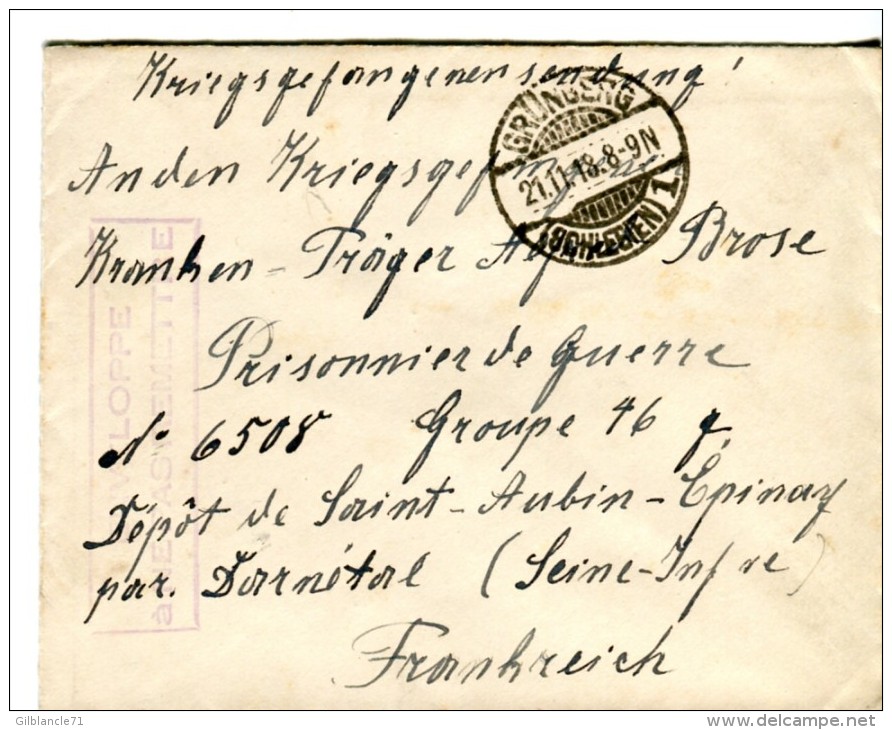 Kriegsgefangenensendung!
An den Kriegsgefangenen
Kranken-Träger Alfred Brose
Prisonnier de Guerre
No 6508 Groupe 46 g.
Dépôt de Saint-Aubin-Épinay
par. Darnétal (Seine-Infre)
Frankreich
GRÜNBERG
21.11.18.8-9N
(SCHLESIEN) 1.
VELOPPE
à NE PAS REMETTRE
Gilblancle71
delcampe.net